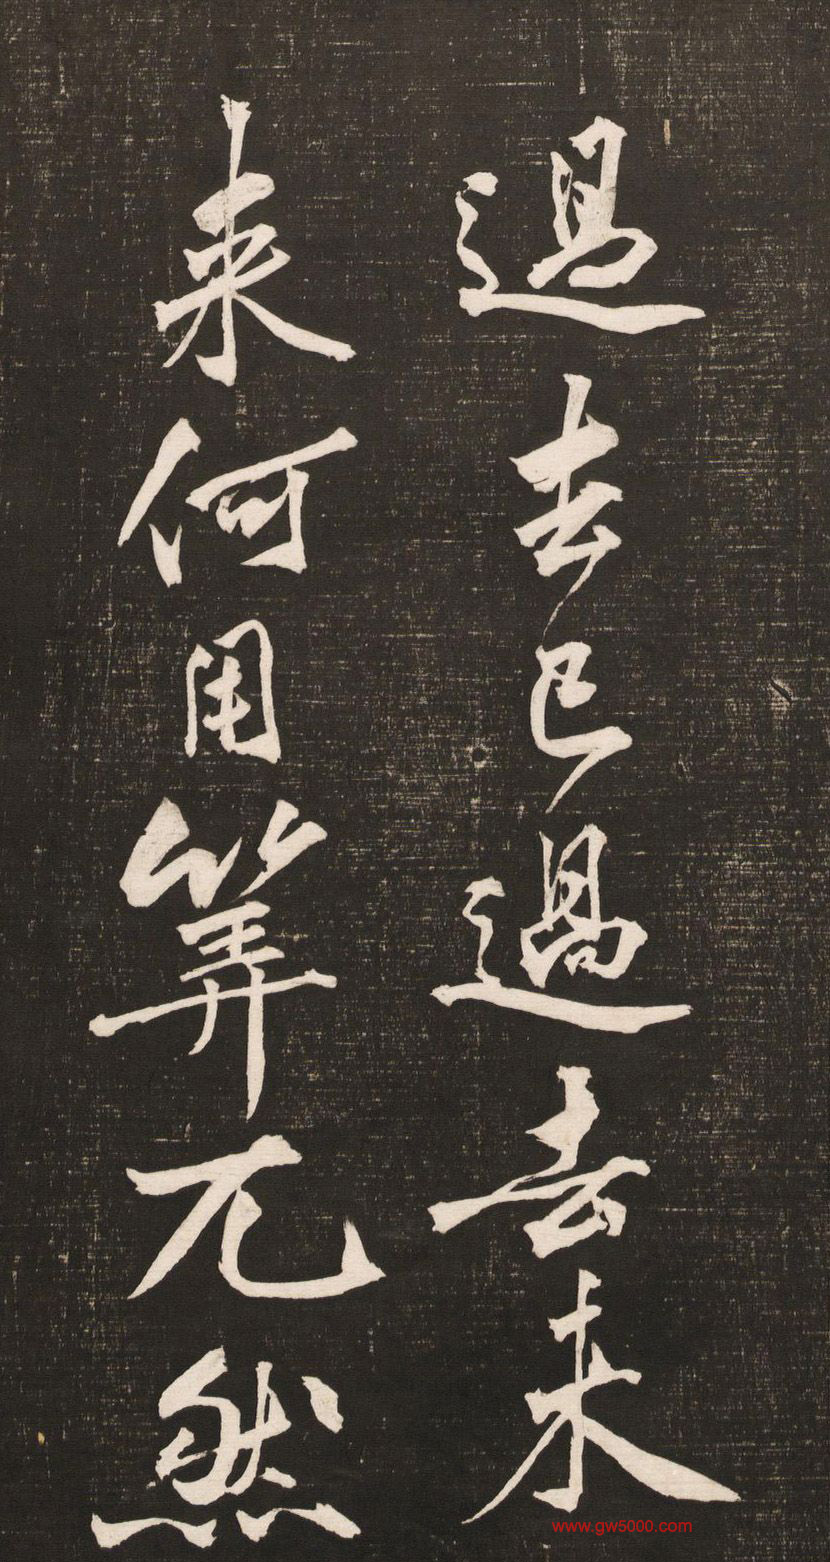 過去已過去未
来何用筭兀然
www.gw5000.com